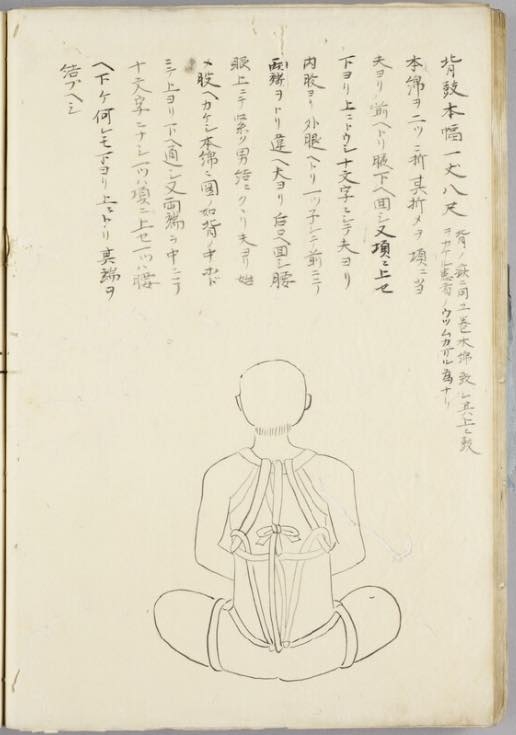 背鼓本幅一丈八尺
背ノ鼓ニ同ニ巻木綿鼓シ其上ニ鼓
ヲカケル患者ノウツムカザル為ナリ
本綿ヲ二ツニ折其折メヲ項ニ当
夫ヨリ前ヘトリ腋下ヘ回シ又項ニ上セ
下ヨリ上ニトウシ十文字ニシテ夫ヨリ
内股ヨリ外服ヘトリ一ツ子シニ前ニテ
両端ヲトリ違ヘ夫ヨリ后ロヘ回シ腰
眼上ニテ緊ク男結ニクヽリ夫ヨリ始
メ股ヘカケシ本綿ニ図ノ如背ノ中ホド
ミテ上ヨリ下ヘ通シ又両端ヲ中ニテ
十文字ニナシ一ツハ項ニ上セ一ツハ腰
ヘ下ケ何レモ下ヨリ上ニトリ其端ヲ
結ブヘシ